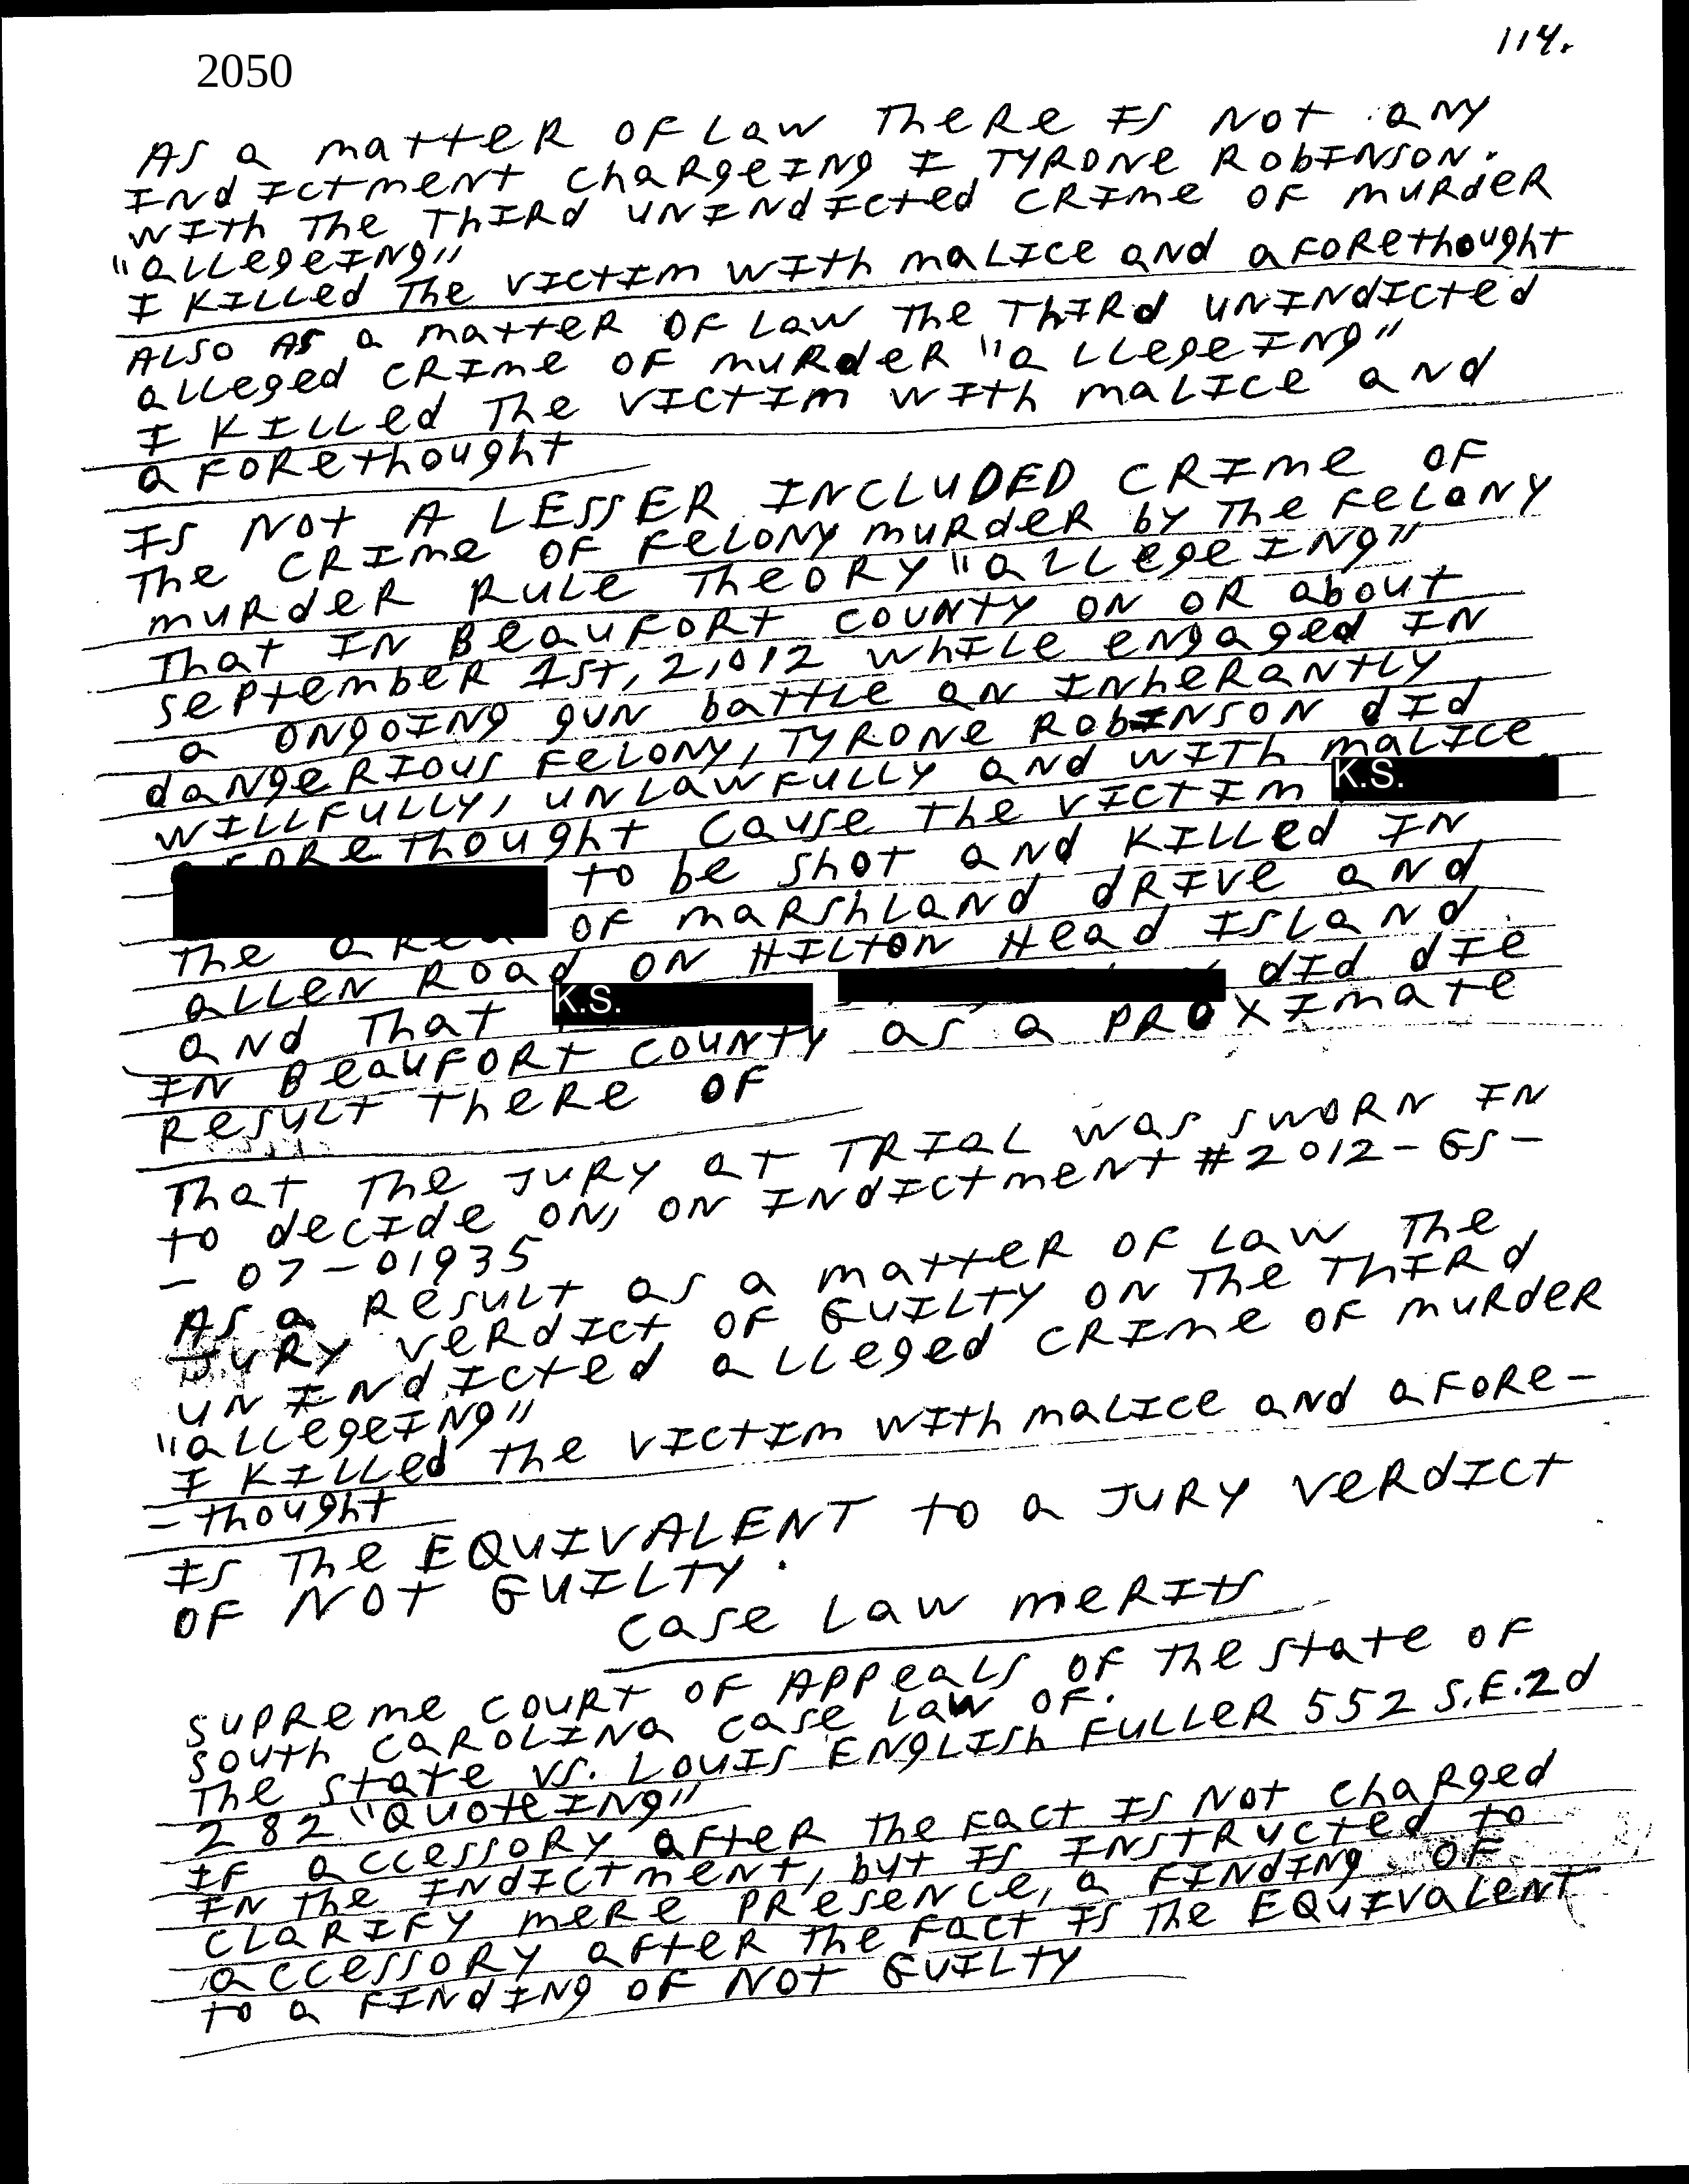 2050
114.
As a matter of law there is not any
indictment chargeing I Tyrone Robinson.
with the third unindicted crime of murder
"allegeing"
I killed the victim with malice and aforethought
Also as a matter of law the third unindicted
alleged crime of murder "allegeing"
I killed the victim with malice and
aforethought
Is not A LESSER INCLUDED crime of
the crime of felony murder by the felony
murder rule theory "allegeing"
that in Beaufort County on or about
September 1st, 2,012 while engaged in
a ongoing gun battle an inherantly
dangerious felony, Tyrone Robinson did
willfully, unlawfully and with malice
aforethought cause the victim K.S.
to be shot and killed in
the area of Marshland Drive and
Allen Road on Hilton Head Island
and that K.S. did die
in Beaufort County as a proximate
result there of
That the jury at trial was sworn in
to decide on, on indictment #2012-GS-
- 07-01935
As a result as a matter of law the
jury verdict of guilty on the third
unindicted alleged crime of murder
"allegeing"
I killed the victim with malice and afore-
- thought
Is the EQUIVALENT to a jury verdict
of not guilty.
Case Law Merits
Supreme Court of Appeals of the State of
South Carolina case law of.
The State vs. Louis English Fuller 552 S.E.2d
282 "Quoteing"
If accessory after the fact is not charged
in the indictment, but is instructed to
clarify mere presence, a finding of
accessory after the fact is the Equivalent
to a finding of not guilty